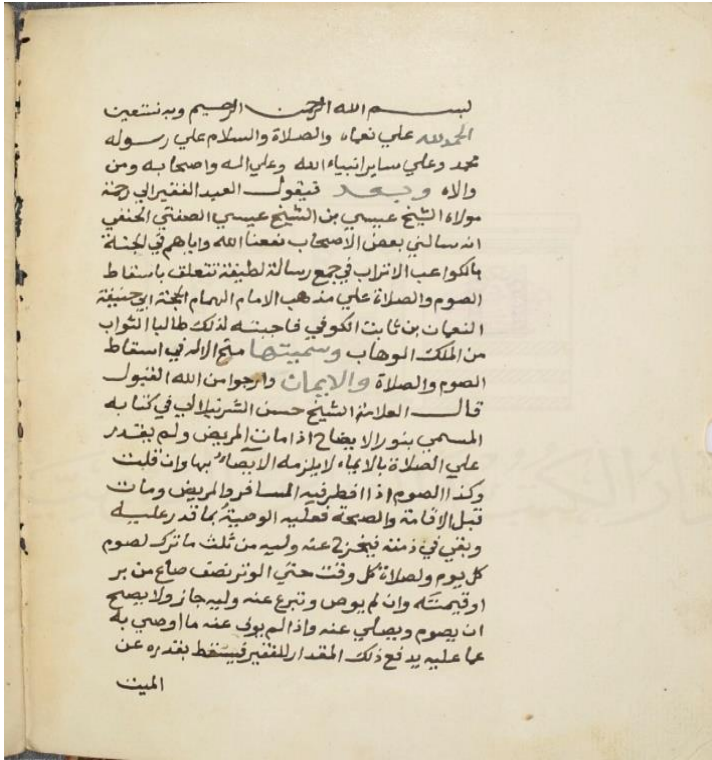 بسم الله الرحمن الرحيم وبه نستعين
الحمد لله علي نعماه والصلاة والسلام علي رسوله
محمد وعلي ساير انبياء الله وعلي اله واصحابه ومن
والاه وبعد فيقول العبد الفقير الي رحمة
مولاه الشيخ عيسي بن الشيخ عيسي الصفتي الحنفي
انه سالني بعض الاصحاب نفعنا الله واياهم في الجنة
بالكواعب الاتراب في جمع رسالة لطيفة تتعلق باسقاط
الصوم والصلاة علي مذهب الامام الهمام الجنة ابي حنيفة
النعمان بن ثابت الكوفي فاجبته لذلك طالبا الثواب
من الملك الوهاب وسميتها منح الاله في اسقاط
الصوم والصلاة والايمان وارجوا من الله القبول
قال العلامة الشيخ حسن الشرنبلالي في كتابه
المسمي بنور الايضاح اذا مات المريض ولم يقدر
علي الصلاة بالايماء لا يلزمه الايصاء بها وان قلت
وكذا الصوم اذا افطر فيه المسافر والمريض ومات
قبل الاقامة والصحة فعليه الوصية بما قدر عليه
وبقي في ذمته فيخرج عنه وليه من ثلث ما ترك لصوم
كل يوم ولصلاة كل وقت حتي الوتر نصف صاع من بر
او قيمته وان لم يوص وتبرع عنه وليه جاز ولا يصح
ان يصوم ويصلي عنه واذا لم يوف عنه ما اوصي به
عما عليه يدفع ذلك المقدار للفقير فيسقط بقدره عن
الميت